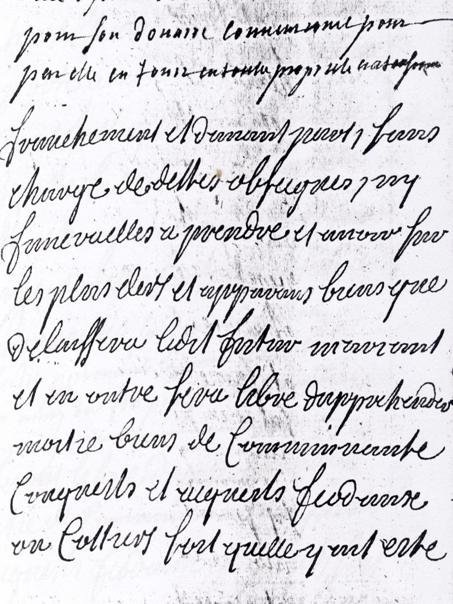 pour son douaire conventionnel pour
par elle en Jouir en toutte propriete
franchement et damant part, sans
charge de debtes obseques, ny
funeralles a prendre et avoir sur
les plus clers et apparans biens que
Delaissera ledit futur mariant
et en outre sera libre dapprehender
moitie biens de Communaute
Conquests et acquests feodaux
ou Cottiers soit quelle y ait esté